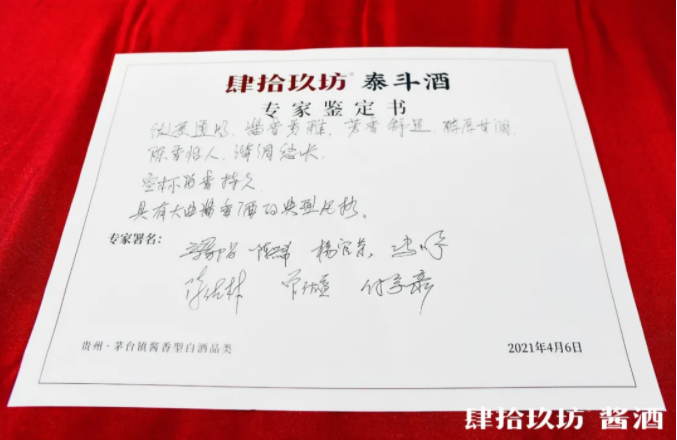 肆拾玖坊® 泰斗酒
专家鉴定书
微黄透明、酱香秀雅、芳香舒适、醇厚甘润、
陈香怡人、满润悠长
空杯留香持久
具有大曲酱香酒的典型风格。
专家署名：
杨官荣
贵州·茅台镇酱香型白酒品类
2021年4月6日
肆拾玖坊®酱酒